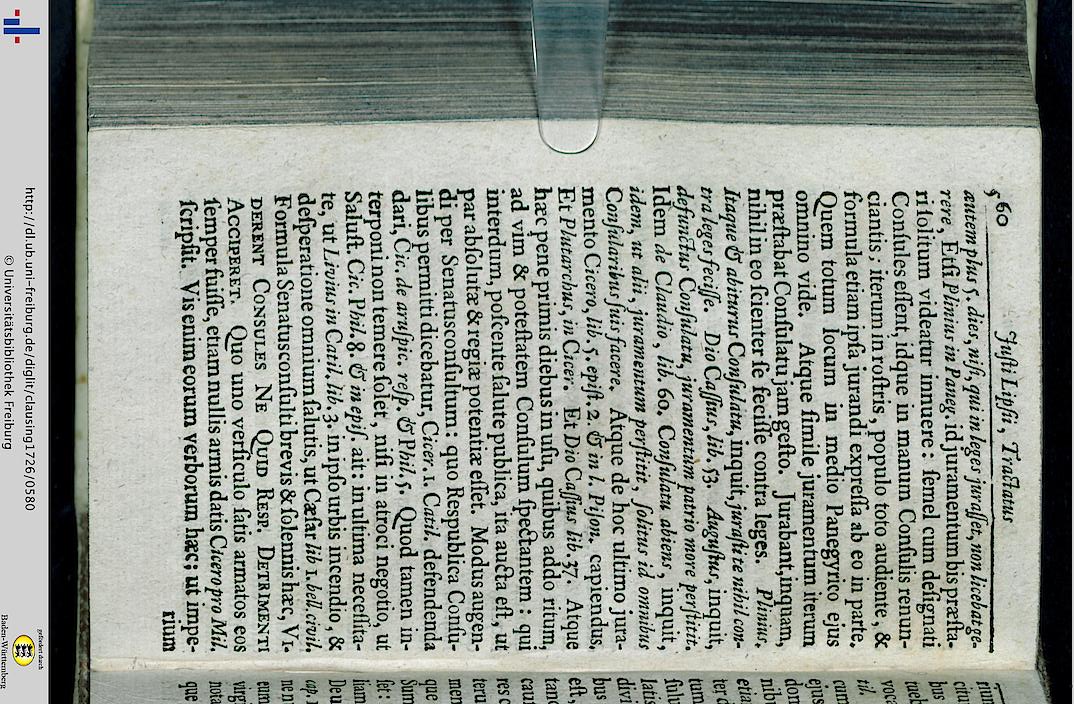 560 Justi Lipsii, Tractatus
autem plus 5. dies, nisi, qui in leges jurasset, non licebat ge-
rere, Etsi Plinius in Paneg. id juramentum bis præsta-
ri solitum videatur innuere: semel cum designati
Consules essent, idque in manum Consulis renun-
ciantis; iterum in rostris, populo toto audiente, &
formula etiam ipsa jurandi expressa ab eo in parte.
Quem totum locum in medio Panegyrico ejus
omnino vide. Atque simile juramentum iterum
præstabat Consulatu jam gesto. Jurabant, inquam,
nihil in eo scienter se fecisse contra leges. Plinius.
Itaque & abiturus Consulatu, inquit, juraste nihil con-
tra leges fecisse. Dio Cassius, lib. 53. Augustus, inquit,
defunctus Consulatu, juramentum patrio more perstitit.
Idem de Claudio, lib. 60. Consulatu abiens, inquit,
idem, ut alii, juramentum perstitit, solitus id omnibus
Consularibus suis facere. Atque de hoc ultimo jura-
mento Cicero, lib. 5. epist. 2. & in l. Pison. capiendus,
Et Plutarchus, in Cicer. Et Dio Cassius lib. 37. Atque
hæc pene primis diebus in usu, quibus addo ritum,
ad vim & potestatem Consulum spectantem: qui
interdum, poscente salute publica, ita aucta est, ut
par absolutæ & regiæ potentiæ esset. Modus augen-
di per Senatusconsultum: quo Respublica Consu-
libus permitti dicebatur, Cicer. 1. Catil. defendenda
dari, Cic. de arusp. resp. & Phil. 5. Quod tamen in-
terponi non temere solet, nisi in atroci negotio, ut
Salust. Cic. Phil. 8. & in epist. ait: in ultima necessita-
te, ut Livius in Catil. lib. 3. in ipso urbis incendio, &
desperatione omnium salutis, ut Cæsar lib 1. bell. civil.
Formula Senatusconsulti brevis & solennis hæc, VI-
DERENT CONSULES NE QUID RESP. DETRIMENTI
ACCIPERET. Quo uno versiculo satis armatos eos
semper fuisse, etiam nullis armis datis Cicero pro Mil.
scripsit. Vis enim eorum verborum hæc; ut impe-
rium
http://dl.ub.uni-freiburg.de/diglit/clausing1726/0580
© Universitätsbibliothek Freiburg
gefördert durch
Baden-Württemberg